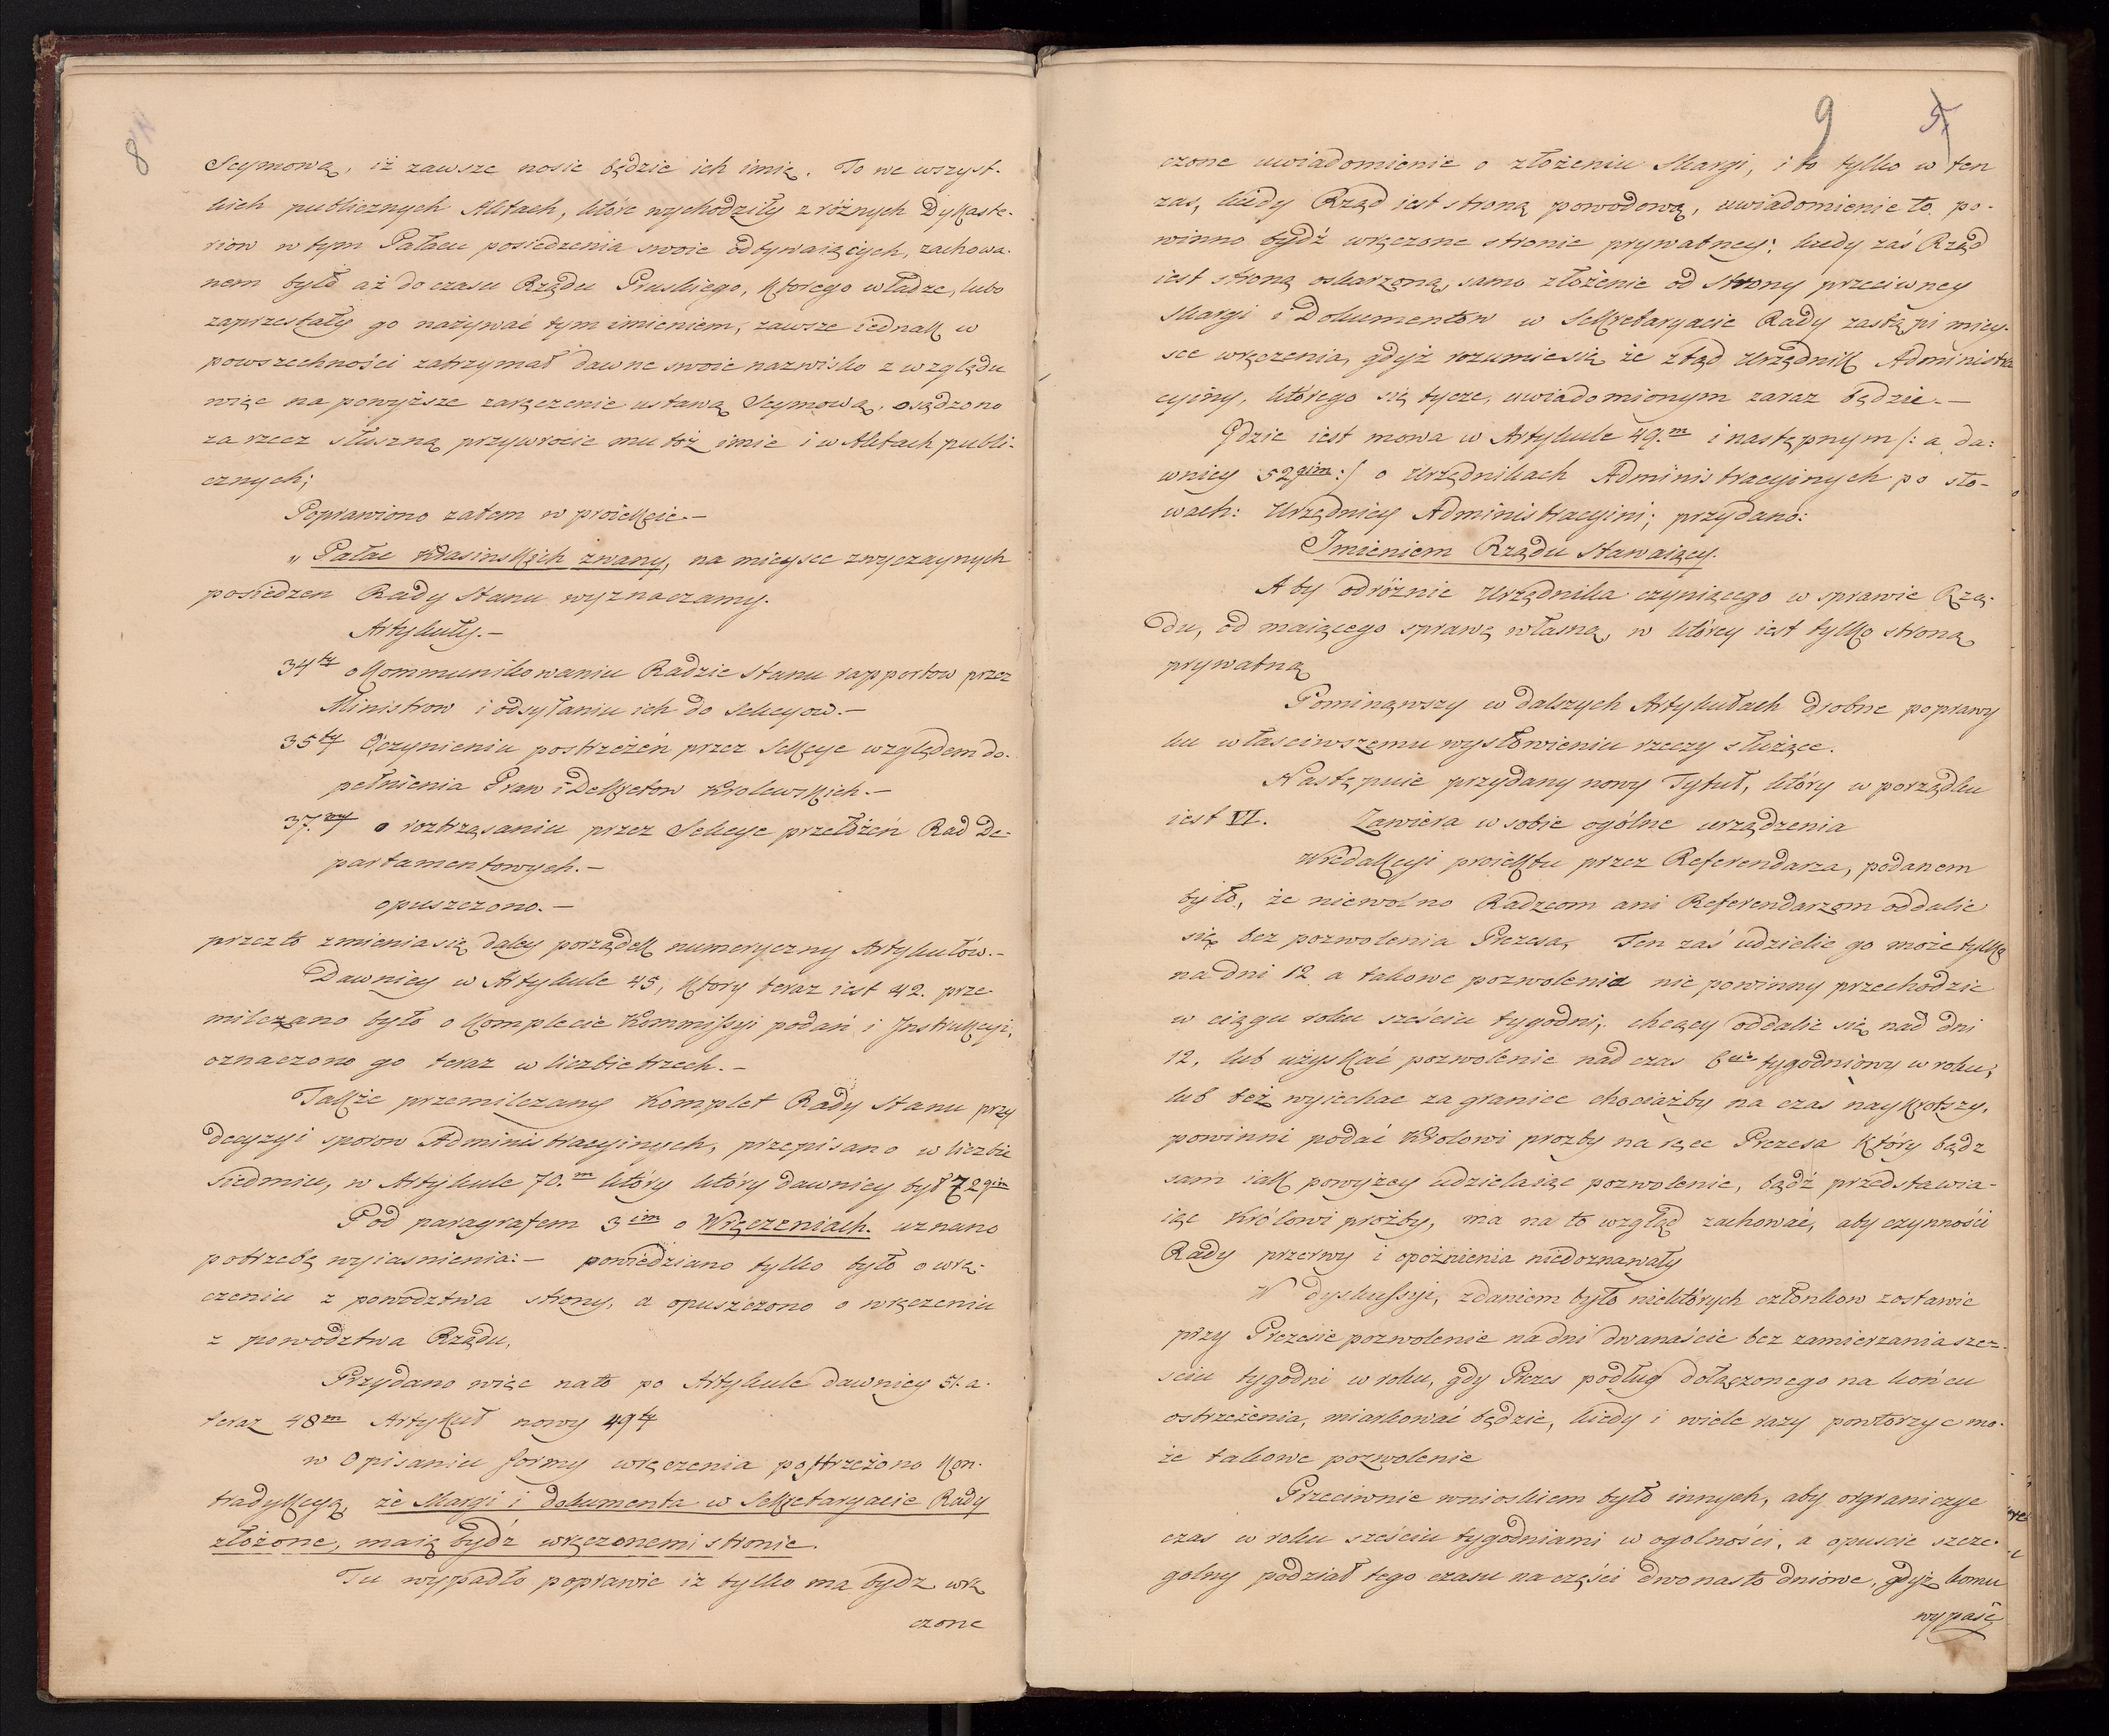 8
Seymową, iż zawsze nosic będzie ich imię. To we wszyst-
kich publicznych Aktach, które wychodziły z różnych Dykaste-
riow w tym Pałacu posiedzenia swoie odbywaiących, zachowa-
nem było aż do czasu Rządu Pruskiego, ktorego władze, lubo
zaprzestały go nażywać tym imieniem, zawsze iednak w
powszechności zatrzymał dawne swoie nazwisko z względu
więc na powyższe zaręczenie ustawą Seymową, osądzono
za rzecz słuszną przywrocic mu toż imie i w Aktach publi-
cznych;
Poprawiono zatem w proiekcie.—
„ Pałac Krasinskich zwany, na mieysce zwyczaynych
posiedzen Rady Stanu wyznaczamy.
Artykuły.—
34ty o kommunikowaniu Radzie Stanu rapportow przez
Ministrow i odsyłaniu ich do Sekcyow.—
35ty O czynieniu postrzeżeń przez Sekcye względem do-
pełnienia Praw i Dekretow Krolewskich.—
37.my o roztrząsaniu przez Sekcye przełożeń Rad De-
partamentowych.—
opuszczono.—
przez to zmienia się daley porządek numeryczny Artykułów.—
Dawniey w Artykule 45, ktory teraz iest 42. prze-
milczano było o komplecie Kommissyi podań i Instrukcyi,
oznaczono go teraz w liczbie trzech.—
Także przemilczany Komplet Rady Stanu przy
decyzyi sporow Administracyinych, przepisano w liczbie
siedmiu, w Artykule 70.m który który dawniey był 72gim
Pod paragrafem 3im o Wręczeniach. uznano
potrzebę wyiasnienia:— powiedziano tylko było o wrę-
czeniu z powodztwa strony, a opuszczono o wręczeniu
z powodztwa Rządu,
Przydano więc na to po Artykule dawniey 51. a.
teraz 48m Artykuł nowy 49ty
w Opisaniu formy wręczenia postrzeżono kon-
tradykcyą, że skargi i dokumenta w Sekretaryacie Rady
złożone, maią bydź wręczonemi stronie.
Tu wypadło poprawic iz tylko ma bydz wrę
czone
9 5
czone uwiadomienie o złożeniu skargi, i to tylko w ten
zas, kiedy Rząd iest stroną powodową, uwiadomienie to po-
winno bydź wręczone stronie prywatney; kiedy zaś Rząd
iest stroną oskarzoną, samo złożenie od strony przeciwney
skargi i Dokumentow w Sekretaryacie Rady zastąpi miey-
sce wręczenia, gdyż rozumie się że ztąd Urzędnik Administra
cyiny, którego się tycze, uwiadomionym zaraz będzie.—
Gdzie iest mowa w Artykule 49.m i następnym /: a da:
wniey 52gim :/ o Urzędnikach Administracyinych po sło-
wach: Urzędnicy Administracyini; przydano:
Imieniem Rządu stawaiący.
Aby odróżnic Urzędnika czyniącego w sprawie Rzą-
du, od maiącego sprawę własną, w którey iest tylko stroną
prywatną
Pominąwszy w dalszych Artykułach drobne poprawy
ku właściwszemu wysłowieniu rzeczy służące.
Następuie przydany nowy Tytuł, który w porządku
iest VI. Zawiera w sobie ogólne urządzenia
W redakcyi proiektu przez Referendarza, podanem
było, że niewolno Radzcom ani Referendarzom oddalic
się bez pozwolenia Prezesa, Ten zaś udzielic go może tylko
na dni 12 a takowe pozwolenia nie powinny przechodzic
w ciągu roku sześciu tygodni, chcący oddalic się nad dni
12, lub użyskać pozwolenie nad czas 6cio tygodniowy w roku,
lub też wyiechac za granice chociażby na czas naykrotszy,
powinni podać Krolowi prozby na ręce Prezesa który bądz
sam iak powyżey udzielaiąc pozwolenie, bądź przedstawia-
iąc Królowi prożby, ma na to wzgląd zachować, aby czynności
Rady przerwy i opóżnienia niedoznawały
W dyskussyi, zdaniem było niektórych członkow zostawic
przy Prezesie pozwolenie na dni dwanaście bez zamierzania sze-
sciu tygodni w roku, gdy Prezes podług dołączonego na końcu
ostrzeżenia, miarkować będzie, kiedy i wiele razy powtorzyc mo-
że takowe pozwolenie
Przeciwnie wnioskiem było innych, aby orgraniczyc
czas w roku sześciu tygodniami w ogolności, a opuscic szcze-
golny podział tego czasu na części dwonasto dniowe, gdyż komu
wypaść